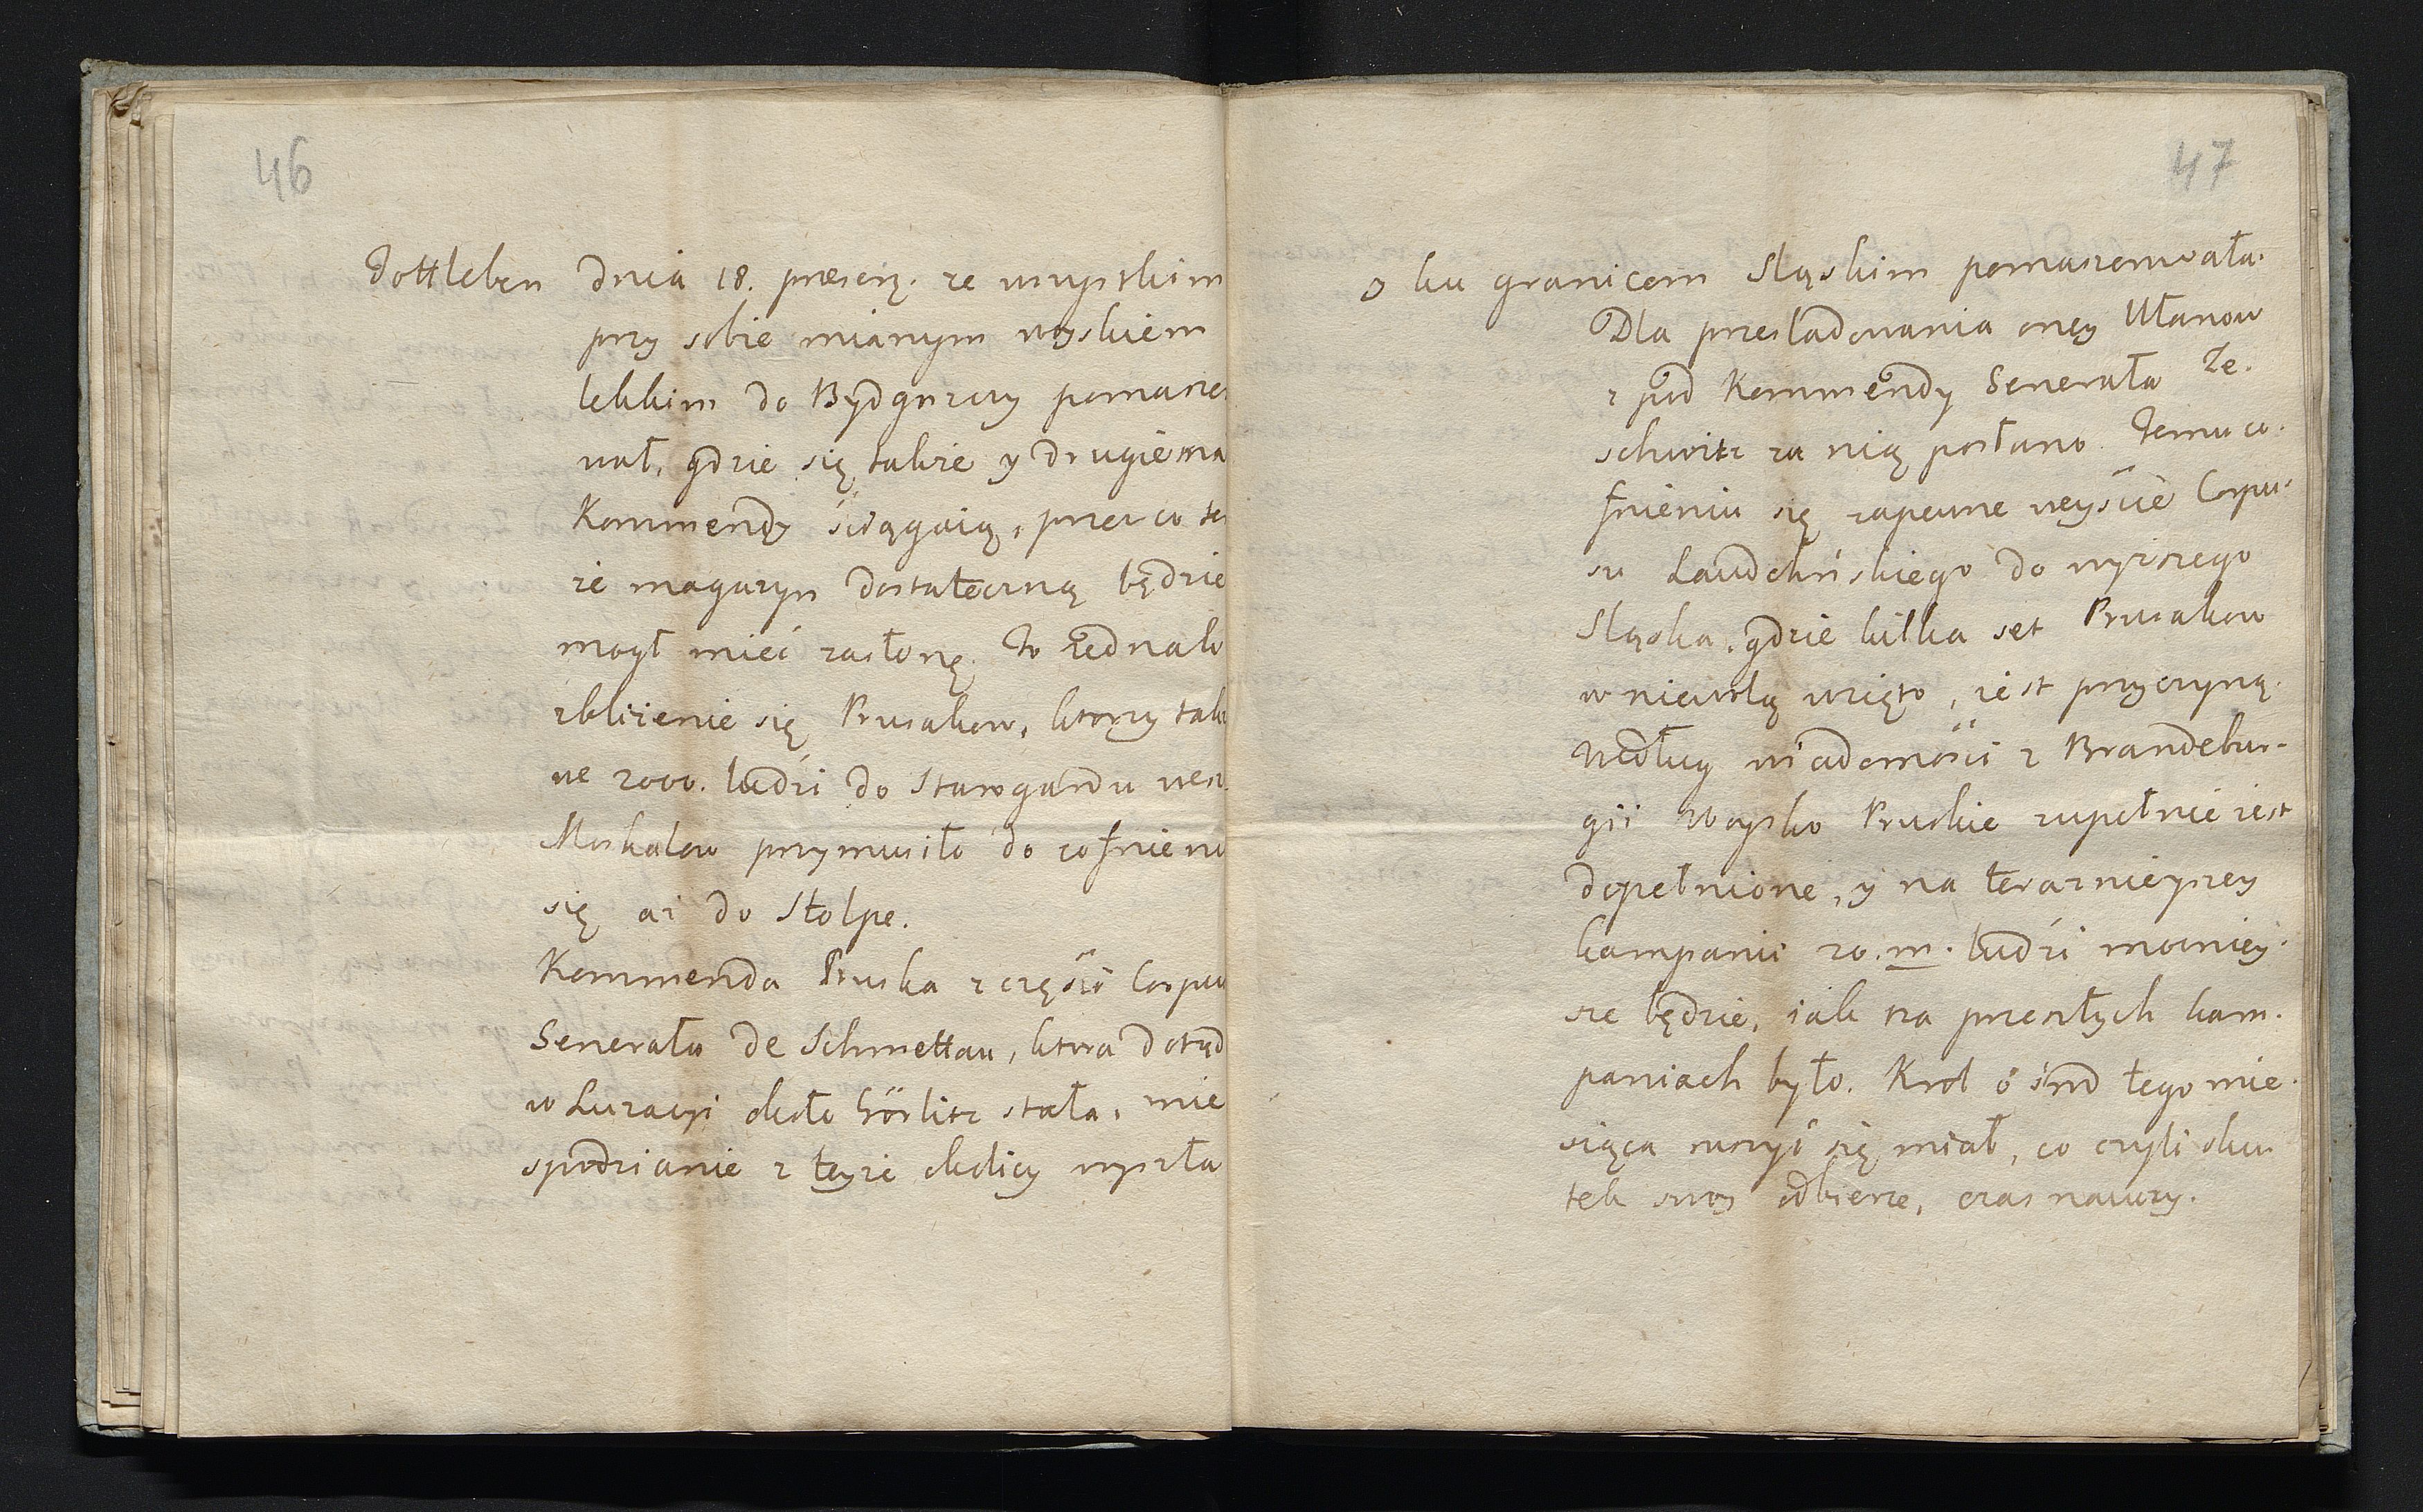 46
Tottleben dnia 18. præsentz. ze wszystkim
przy sobie mianym woyskiem
lekkim do Bydgoszczy pomasze
wał, gdzie się także y drugie ma
Kommendy ściągaią, przez co te
że magazyn dostateczną będzie
mogł mieć zasłonę. To iednako
zbliżenie się Prusakow, ktorzy tak
we 2000. ludzi do Starogardu wesz
Moskalow przymusiło do cofnieni
się aż do Stolpe.
Kommenda Pruska z częśći Corpu
Generała de Schmettau, ktora dotąd
w Luzacyi około Görlitz stała, nie
spodzianie z teyże okolicy wyszła
47
o ku granicom Sląskim pomaszerowała.
Dla prześladowania oney Ułanow
z pod Kommendy Generała Ze-
schwitz za nią posłano. Temu co-
fnieniu się zapewne weyście Corpu-
su Laudohńskiego do wyższego
Sląska, gdzie kilka set Prusakow
w niewolą wzięto, iest przyczyną.
Według wiadomośći z Brandebur-
gii Woysko Pruskie zupełnie iest
dopełnione, y na terazniejszey
kampanii 20.m. ludzi mocniey-
sze będzie, iak na przeszłych kam-
paniach było. Krol 8 śmd tego mie-
siąca ruszyć się miał, co czyli sku-
tek swoy odbierze, czas nauczy.